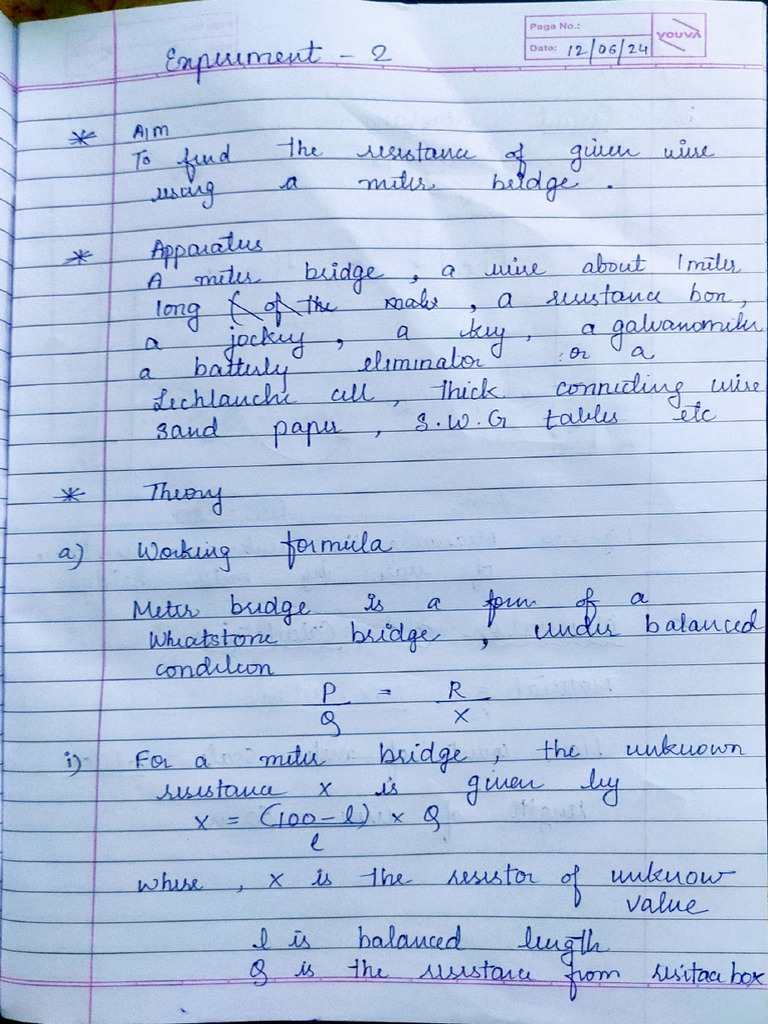 Page No.:
Date: 12/06/24
YOUVA
Experiment - 2
* Aim
To find the resistance of given wire
using a meter bridge .
* Apparatus
A meter bridge , a wire about 1 meter
long ( of the make , a resistance box ,
a jockey , a key , a galvanometer
a batterly eliminator or a
Lechlanche cell , thick connecting wire
sand paper , S.W.G tables etc
* Theory
a) Working formula
Meter bridge is a form of a
Wheatstone bridge , under balanced
condition
P = R
Q X
i) For a meter bridge , the unknown
resistance X is given by
X = (100 - l) × Q
l
where , X is the resistor of unknow
value
l is balanced length
Q is the resistance from resitace box